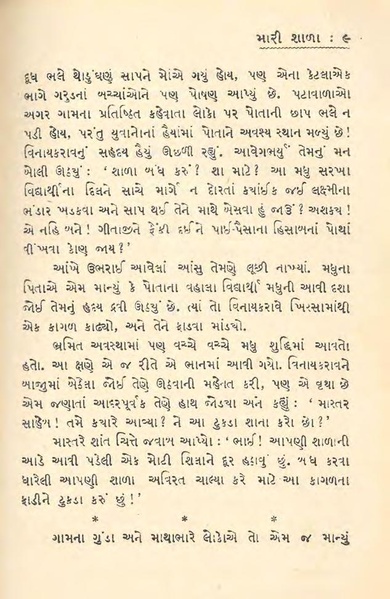 મારી શાળા : ૯
દૂધ ભલે થોડુંઘણું સાપને મોંએ ગયું હોય, પણ એના કેટલાએક
ભાગે ગરુડનાં બચ્ચાંઓને પણ પોષણ આપ્યું છે. પટાવાળાઓ
અગર ગામના પ્રતિષ્ઠિત કહેવાતા લોકો પર પોતાની છાપ ભલે ન
પડી હોય, પરંતુ યુવાનોનાં હૈયાંમાં પોતાને અવશ્ય સ્થાન મળ્યું છે!
વિનાયકરાવનું સહૃદય હૈયું ઊછળી રહ્યું. આવેગભર્યું તેમનું મન
બોલી ઊઠ્યું : ' શાળા બંધ કરું ? શા માટે ? આ મધુ સરખા
વિદ્યાર્થીના દિલને સાચે માર્ગે ન દોરતાં કયાંઈક જઈ લક્ષ્મીના
ભંડાર ખડકવા અને સાપ થઈ તેને માથે બેસવા હું જાઉં ? અશક્ય !
એ નહિ બને ! ગીતાજીને ફેંકી દઈને પાઈ-પૈસાના હિસાબનાં પોથાં
વીંખવા કોણ જાય ? '
આંખે ઉભરાઈ આવેલાં આંસુ તેમણે લૂછી નાખ્યાં. મધુના
પિતાએ એમ માન્યું કે પોતાના વહાલા વિદ્યાર્થી મધુની આવી દશા
જોઈ તેમનું હૃદય દ્રવી ઊઠ્યું છે. ત્યાં તો વિનાયકરાવે ખિસ્સામાંથી
એક કાગળ કાઢ્યો, અને તેને ફાડવા માંડ્યો.
ભ્રમિત અવસ્થામાં પણ વચ્ચે વચ્ચે મધુ શુદ્ધિમાં આવતો
હતો. આ ક્ષણે એ જ રીતે એ ભાનમાં આવી ગયો. વિનાયકરાવને
બાજુમાં બેઠેલા જોઈ તેણે ઊઠવાની મહેનત કરી, પણ એ વૃથા છે
એમ જણાતાં આદરપૂર્વક તેણે હાથ જોડ્યા અને કહ્યું : ' માસ્તર
સાહેબ ! તમે કયારે આવ્યા ? ને આ ટુકડા શાના કરો છો ? '
માસ્તરે શાંત ચિત્તે જવાબ આપ્યો : ' ભાઈ ! આપણી શાળાની
આડે આવી પડેલી એક મોટી શિલાને દૂર હઠાવું છું. બંધ કરવા
ધારેલી આપણી શાળા અવિરત ચાલ્યા કરે માટે આ કાગળના
ફાડીને ટુકડા કરું છું ! '
* * *
ગામના ગુંડા અને માથાભારે લોકોએ તો એમ જ માન્યું